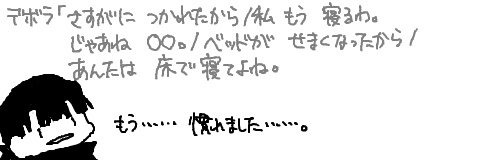 デボラ「さすがに つかれたから/私 もう 寝るわ。
じゃあね 〇〇。/ベッドが せまくなったから/
あんたは 床で寝てよね。
もう…… 慣れました……。